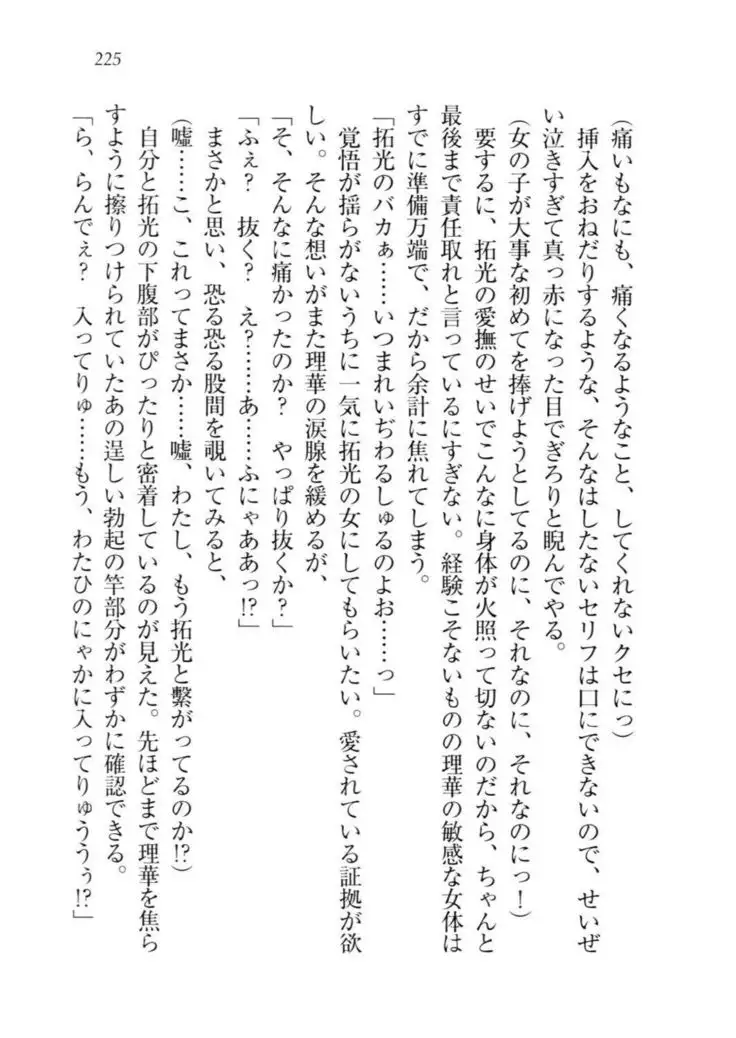 225
(痛いもなにも、痛くなるようなこと、してくれないクセにっ)
挿入をおねだりするような、そんなはしたないセリフは口にできないので、せいぜ
い泣きすぎて真っ赤になった目でぎろりと睨んでやる。
(女の子が大事な初めてを捧げようとしてるのに、それなのに、それなのにっ!)
要するに、拓光の愛撫のせいでこんなに身体が火照って切ないのだから、ちゃんと
最後まで責任取れと言っているにすぎない。経験こそないものの理華の敏感な女体は
すでに準備万端で、だから余計に焦れてしまう。
「拓光のバカぁ……いつまれいぢわるしゅるのよお……っ」
覚悟が揺らがないうちに一気に拓光の女にしてもらいたい。愛されている証拠が欲
しい。そんな想いがまた理華の涙腺を緩めるが、
「そ、そんなに痛かったのか? やっぱり抜くか?」
「ふぇ? 抜く? え?……あ……ふにゃああっ!?」
まさかと思い、恐る恐る股間を覗いてみると、
(嘘……こ、これってまさか……嘘、わたし、もう拓光と繋がってるのか!?)
自分と拓光の下腹部がぴったりと密着しているのが見えた。先ほどまで理華を焦ら
すように擦りつけられていたあの逞しい勃起の竿部分がわずかに確認できる。
「ら、らんでぇ? 入ってりゅ……もう、わたひのにゃかに入ってりゅううぅ!?」